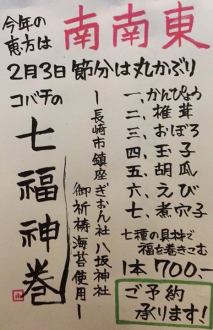 今年の
恵方は
南南東
2月3日 節分は丸かぶり
コバチの
七福神巻
―長崎市鎮座ぎおん社 八坂神社
御祈祷海苔使用―
一、かんぴょう
二、椎茸
三、おぼろ
四、玉子
五、胡瓜
六、えび
七、煮穴子
七種の具材で
福を巻きこむ
1本700.-
ご予約
承ります!